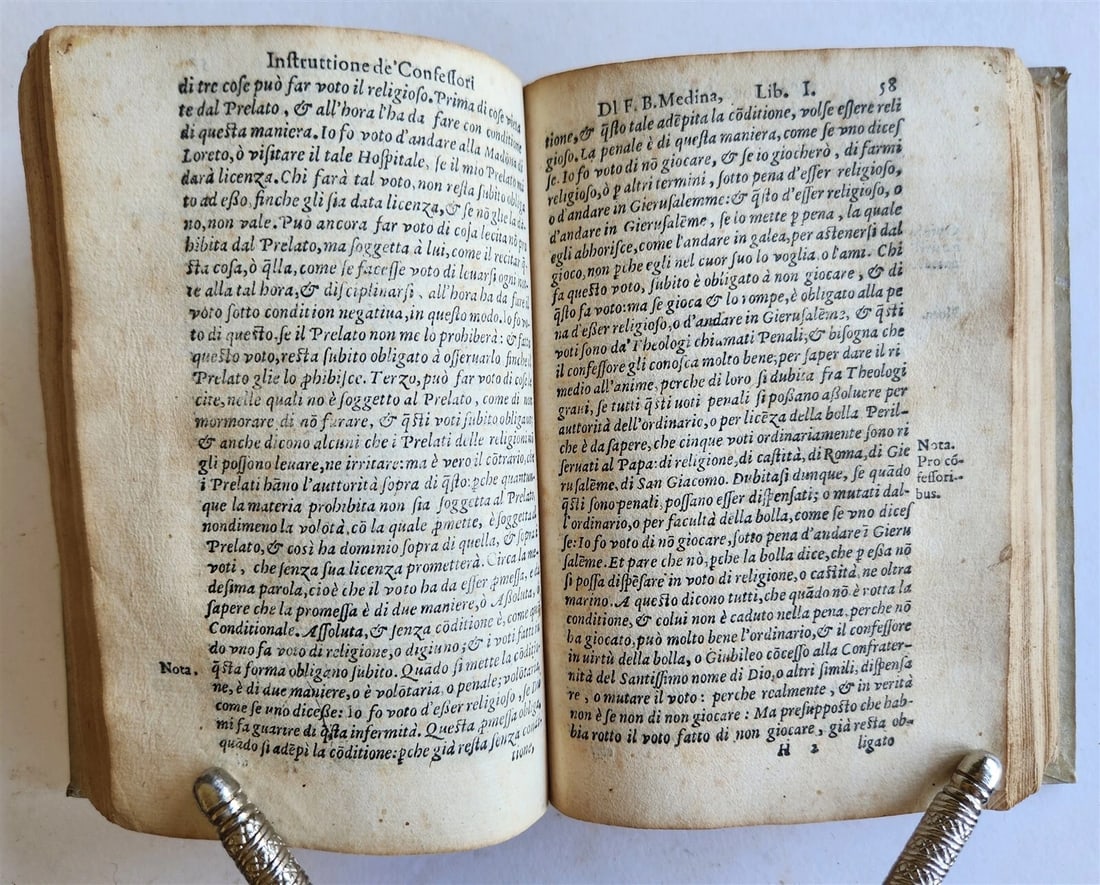 Instruttione de'Confessori
di tre cose può far voto il religioso. Prima di cose
te dal Prelato, & all'hora l'ha da fare con conditione
di questa maniera. Io fo voto d'andare alla Madōna di
Loreto, ò visitare il tale Hospitale, se il mio Prelato mi
darà licenza. Chi farà tal voto, non resta subito obliga
to ad esso, finche gli sia data licenza, & se nō glie la
no, non vale. Può ancora far voto di cosa lecita nō
hibita dal Prelato, ma soggetta à lui, come il recitar
sta cosa, ò q̄lla, come se facesse voto di leuarsi ogni
te alla tal hora, & disciplinarsi, all'hora ha da fare il
voto sotto condition negatiua, in questo modo. Io fo
to di questo, se il Prelato non me lo prohiberà: & fatto
questo voto, resta subito obligato à osseruarlo finche il
Prelato glie lo ꝓhibisce. Terzo, può far voto di cose
cite, nelle quali nō è soggetto al Prelato, come di non
mormorare, di nō furare, & q̄sti voti subito obligano
& anche dicono alcuni che i Prelati delle religioni
gli possono leuare, ne irritare: ma è vero il cōtrario, che
i Prelati hāno l'auttorità sopra di q̄sto: ꝑche quantun-
que la materia prohibita non sia soggetta al Prelato,
nondimeno la volōtà, cō la quale ꝓmette, è soggetta al
Prelato, & così ha dominio sopra di quella, & sopra i
voti, che senza sua licenza prometterà. Circa la me-
desima parola, cioè che il voto ha da esser ꝓmessa, e da
sapere che la promessa è di due maniere, ò Assoluta, o
Conditionale. Assoluta, & senza cōditione è, come quā
do vno fa voto di religione, o digiuno; & i voti fatti in
Nota.
q̄sta forma obligano subito. Quado si mette la cōditio
ne, è di due maniere, o è volōtaria, o penale; volōtaria,
come se uno dicesse: Io fo voto d'esser religioso, se Dio
mi fa guarire di q̄sta infermità. Questa ꝓmessa obliga,
quādo si adēpi la cōditione: ꝑche già resta senza condi-
tione,
DI F. B. Medina, Lib. I. 58
tione, & q̄sto tale adēpita la cōditione, volse essere reli
gioso. La penale è di questa maniera, come se vno dices
se. Io fo voto di nō giocare, & se io giocherò, di farmi
religioso, ò ꝑ altri termini, sotto pena d'esser religioso,
o d'andare in Gierusalemme: & q̄sto d'esser religioso, o
d'andare in Gierusalēme, se io mette ꝑ pena, la quale
egli abhorisce, come l'andare in galea, per astenersi dal
gioco, non ꝑche egli nel cuor suo lo voglia, o l'ami. Chi
fa questo voto, subito è obligato à non giocare, & di
q̄sto fa voto: ma se gioca & lo rompe, è obligato alla pe
na d'esser religioso, o d'andare in Gierusalēme, & q̄sti
voti sono da'Theologi chiamati Penali; & bisogna che
il confessore gli conosca molto bene; per saper dare il ri
medio all'anime, perche di loro si dubita fra Theologi
graui, se tutti q̄sti uoti penali si possano assoluere per
auttorità dell'ordinario, o per licēza della bolla Peril-
che è da sapere, che cinque voti ordinariamente sono ri
seruati al Papa: di religione, di castità, di Roma, di Gie
rusalēme, di San Giacomo. Dubitasi dunque, se quādo
q̄sti sono penali, possano esser dispensati; o mutati dal-
l'ordinario, o per facultà della bolla, come se vno dices
se: Io fo voto di nō giocare, sotto pena d'andare ī Gieru
salēme. Et pare che nò, ꝑche la bolla dice, che ꝑ essa nō
si possa dispēsare in voto di religione, o castità, ne oltra
marino. A questo dicono tutti, che quādo nō è rotta la
conditione, & colui non è caduto nella pena, perche nō
ha giocato, può molto bene l'ordinario, & il confessore
in uirtù della bolla, o Giubileo cōcesso alla Confrater-
nità del Santissimo nome di Dio, o altri simili, dispensa
re, o mutare il voto: perche realmente, & in verità
non è se non di non giocare: Ma presupposto che hab-
bia rotto il voto fatto di non giocare, già resta ob-
H 2 ligato
Nota.
Pro cō-
fessori-
bus.